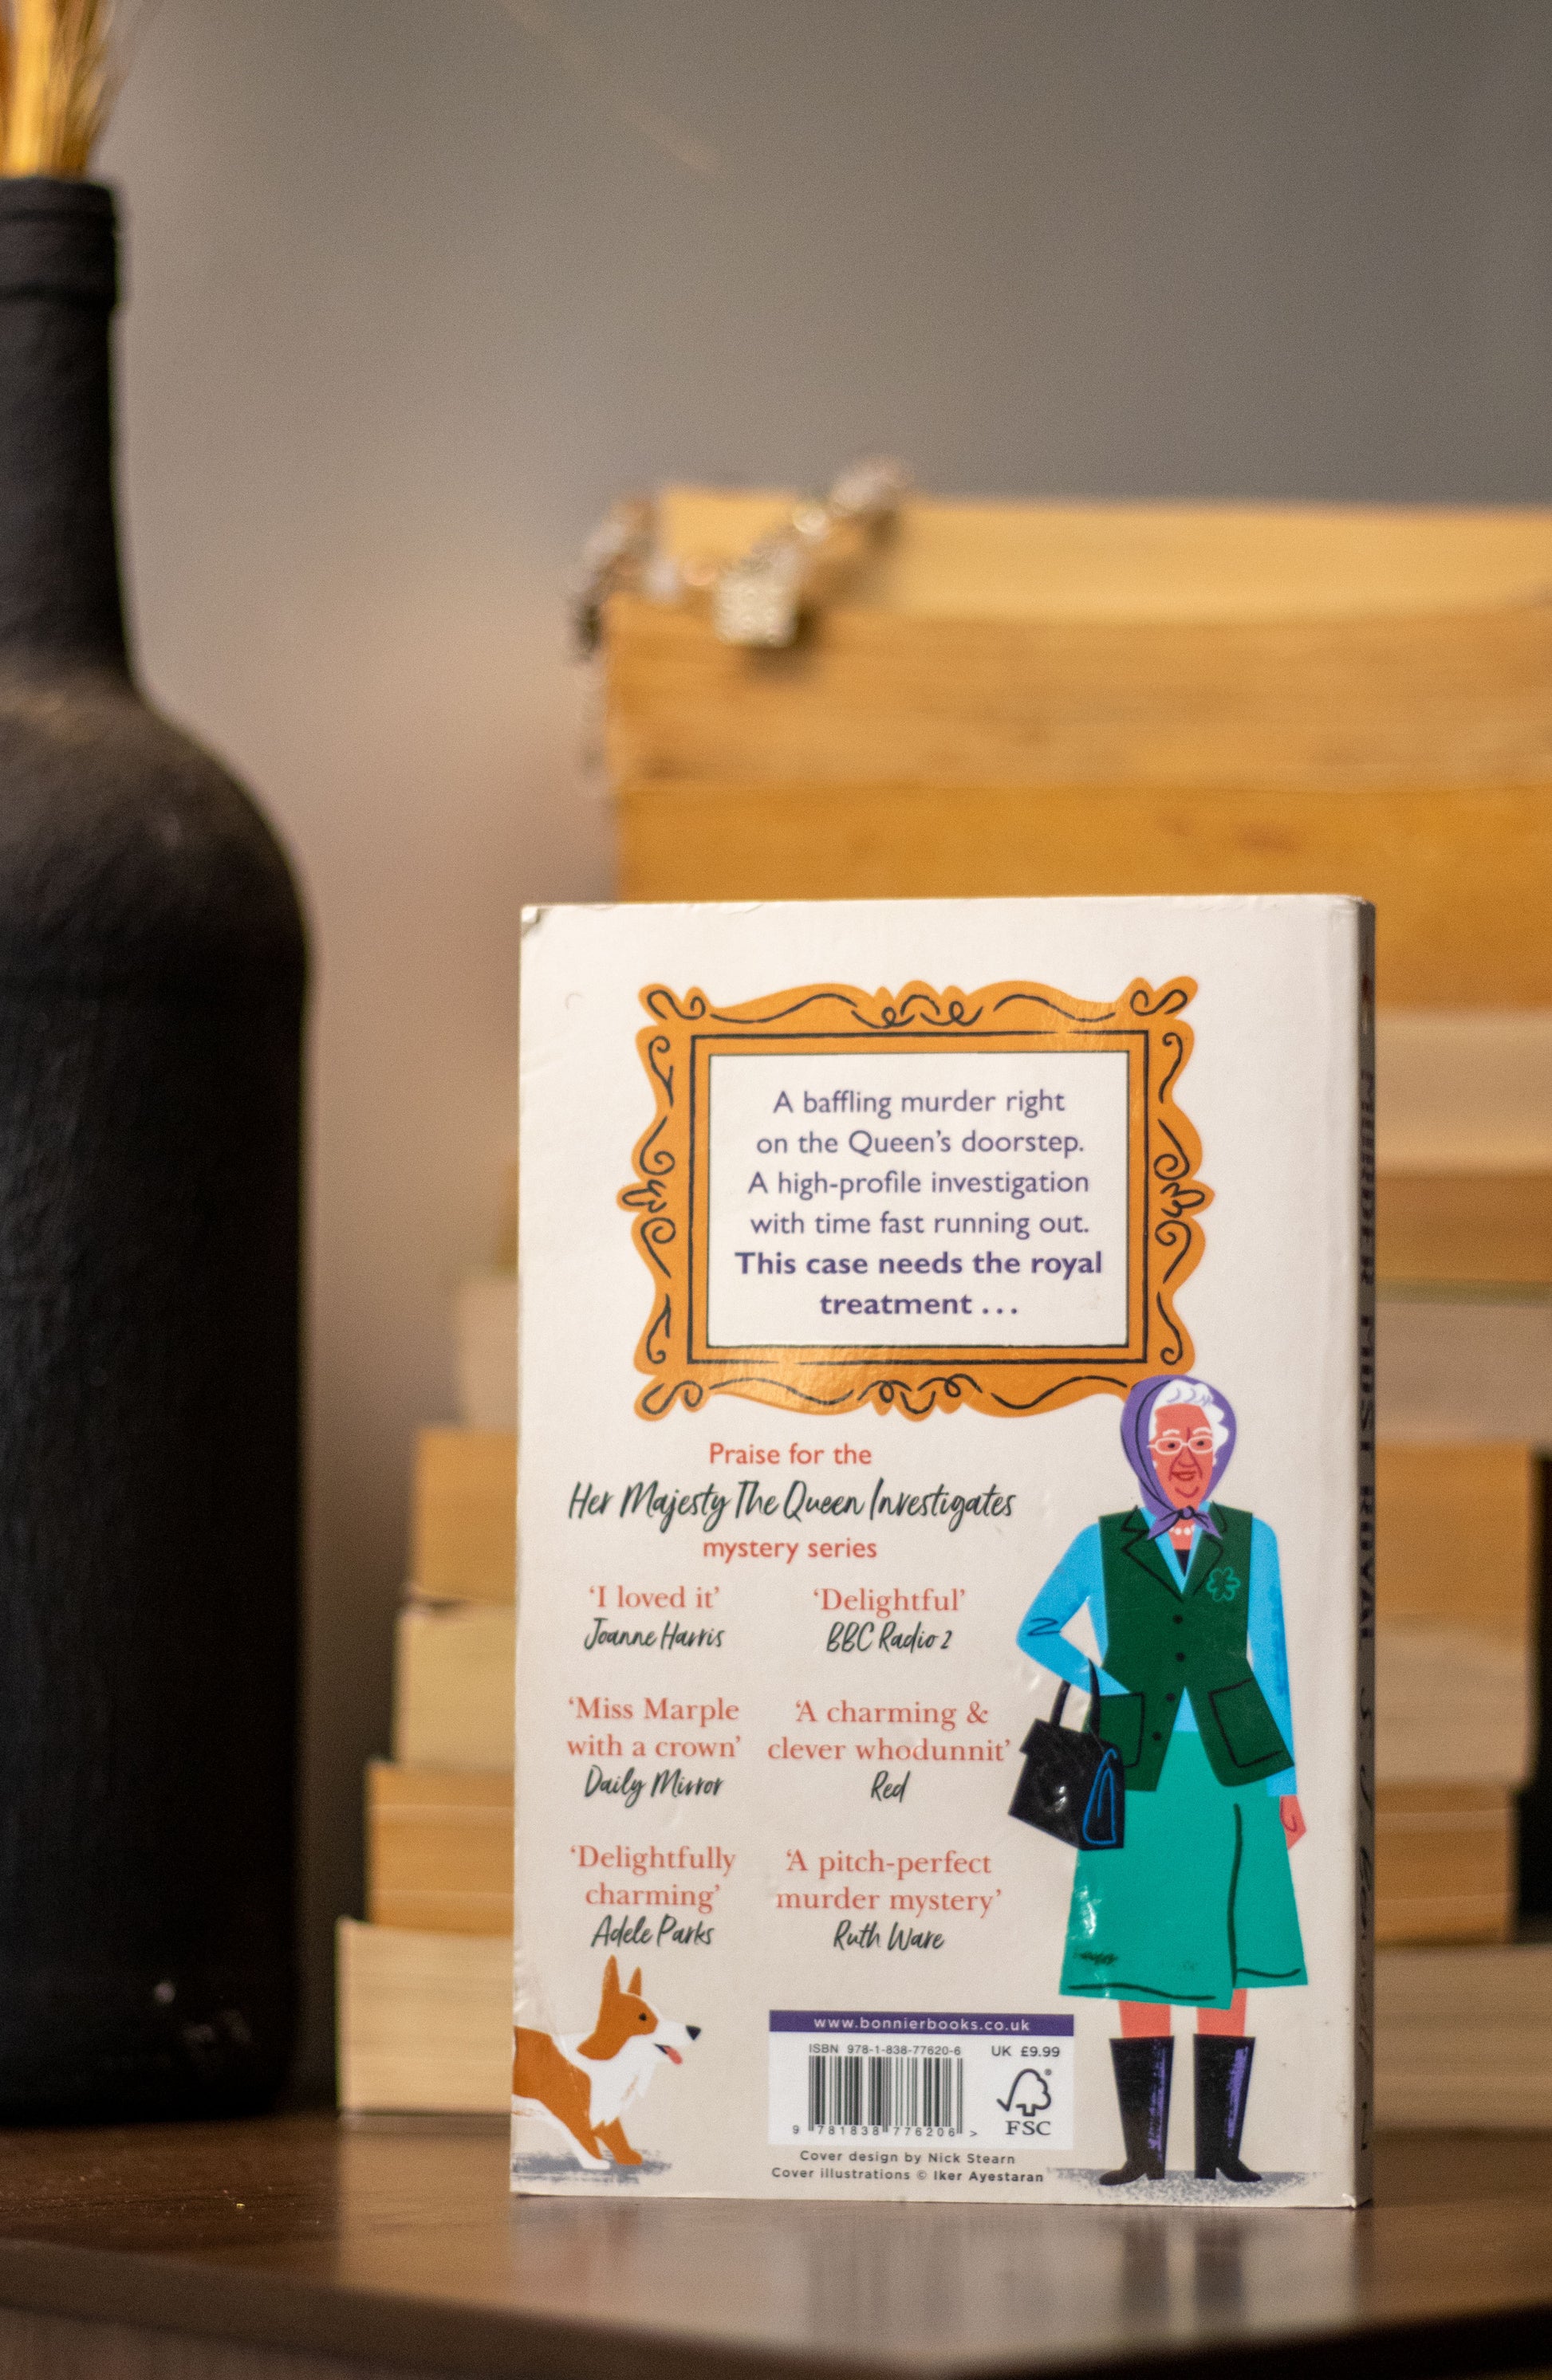 A baffling murder right
on the Queen's doorstep.
A high-profile investigation
with time fast running out.
This case needs the royal
treatment ...
Praise for the
Her Majesty The Queen Investigates
mystery series
'I loved it'
Joanne Harris
'Delightful'
BBC Radio 2
'Miss Marple
with a crown'
Daily Mirror
'A charming &
clever whodunnit'
Red
'Delightfully
charming'
Adele Parks
'A pitch-perfect
murder mystery'
Ruth Ware
www.bonnierbooks.co.uk
ISBN 978-1-838-77620-6
UK £9.99
9 781838 776206 >
FSC
Cover design by Nick Stearn
Cover illustrations © Iker Ayestaran
MURDER MOST ROYAL